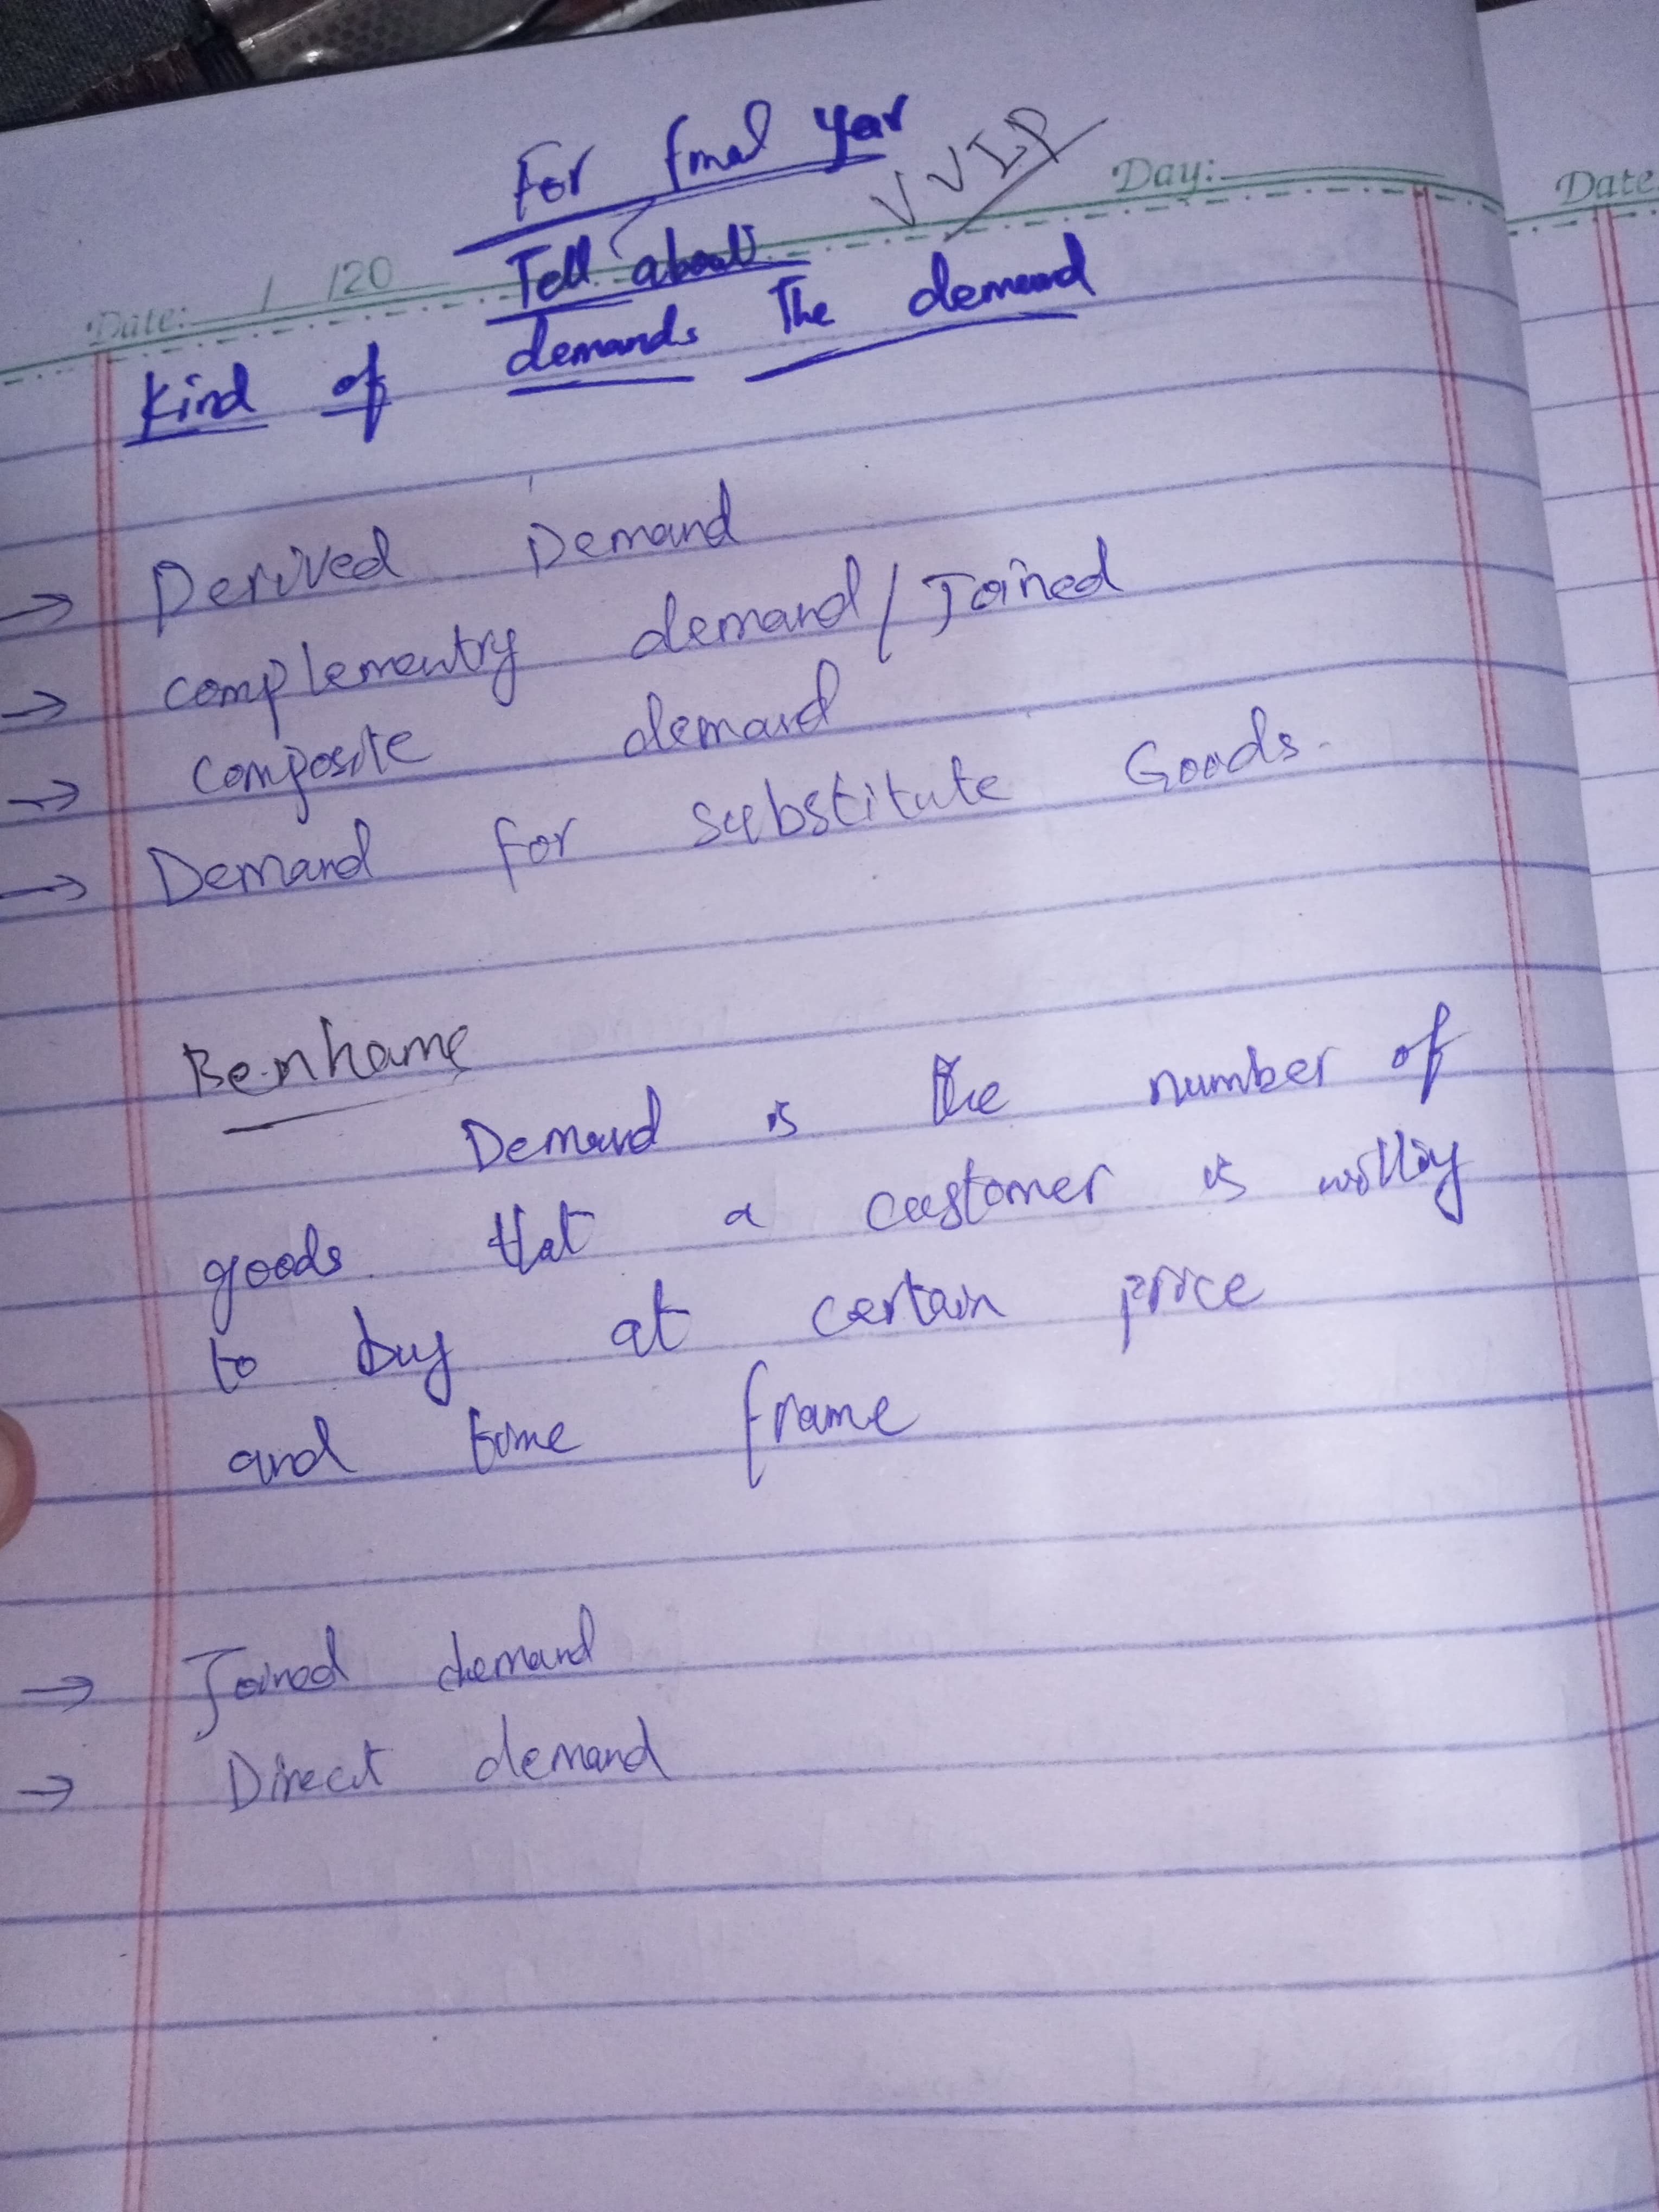 For final year
VVIP
Day:
Date
Tell about
Date: / /20
The demand
Kind of demands
→ Derived Demand
→ complementry demand/Joined
→ composite demand
→ Demand for substitute Goods.
Benhame
Demand is the number of
goods that a customer is willing
to buy at certain price
and time frame
→ Joined demand
→ Direct demand